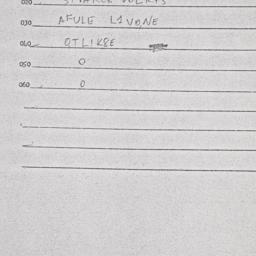 020
030 AFULE LIVONE
040 OTLIKSE
050 0
060 0